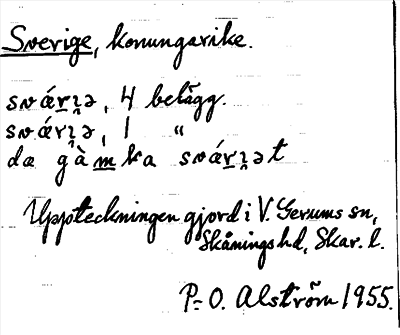 Sverige, konungarike.
svári̯ə, 4 belägg.
svári̯ə, 1 "
da gàmka svári̯ət
Uppteckningen gjord i V. Gerums sn,
Skånings hd, Skar. l.
P-O. Alström 1955.